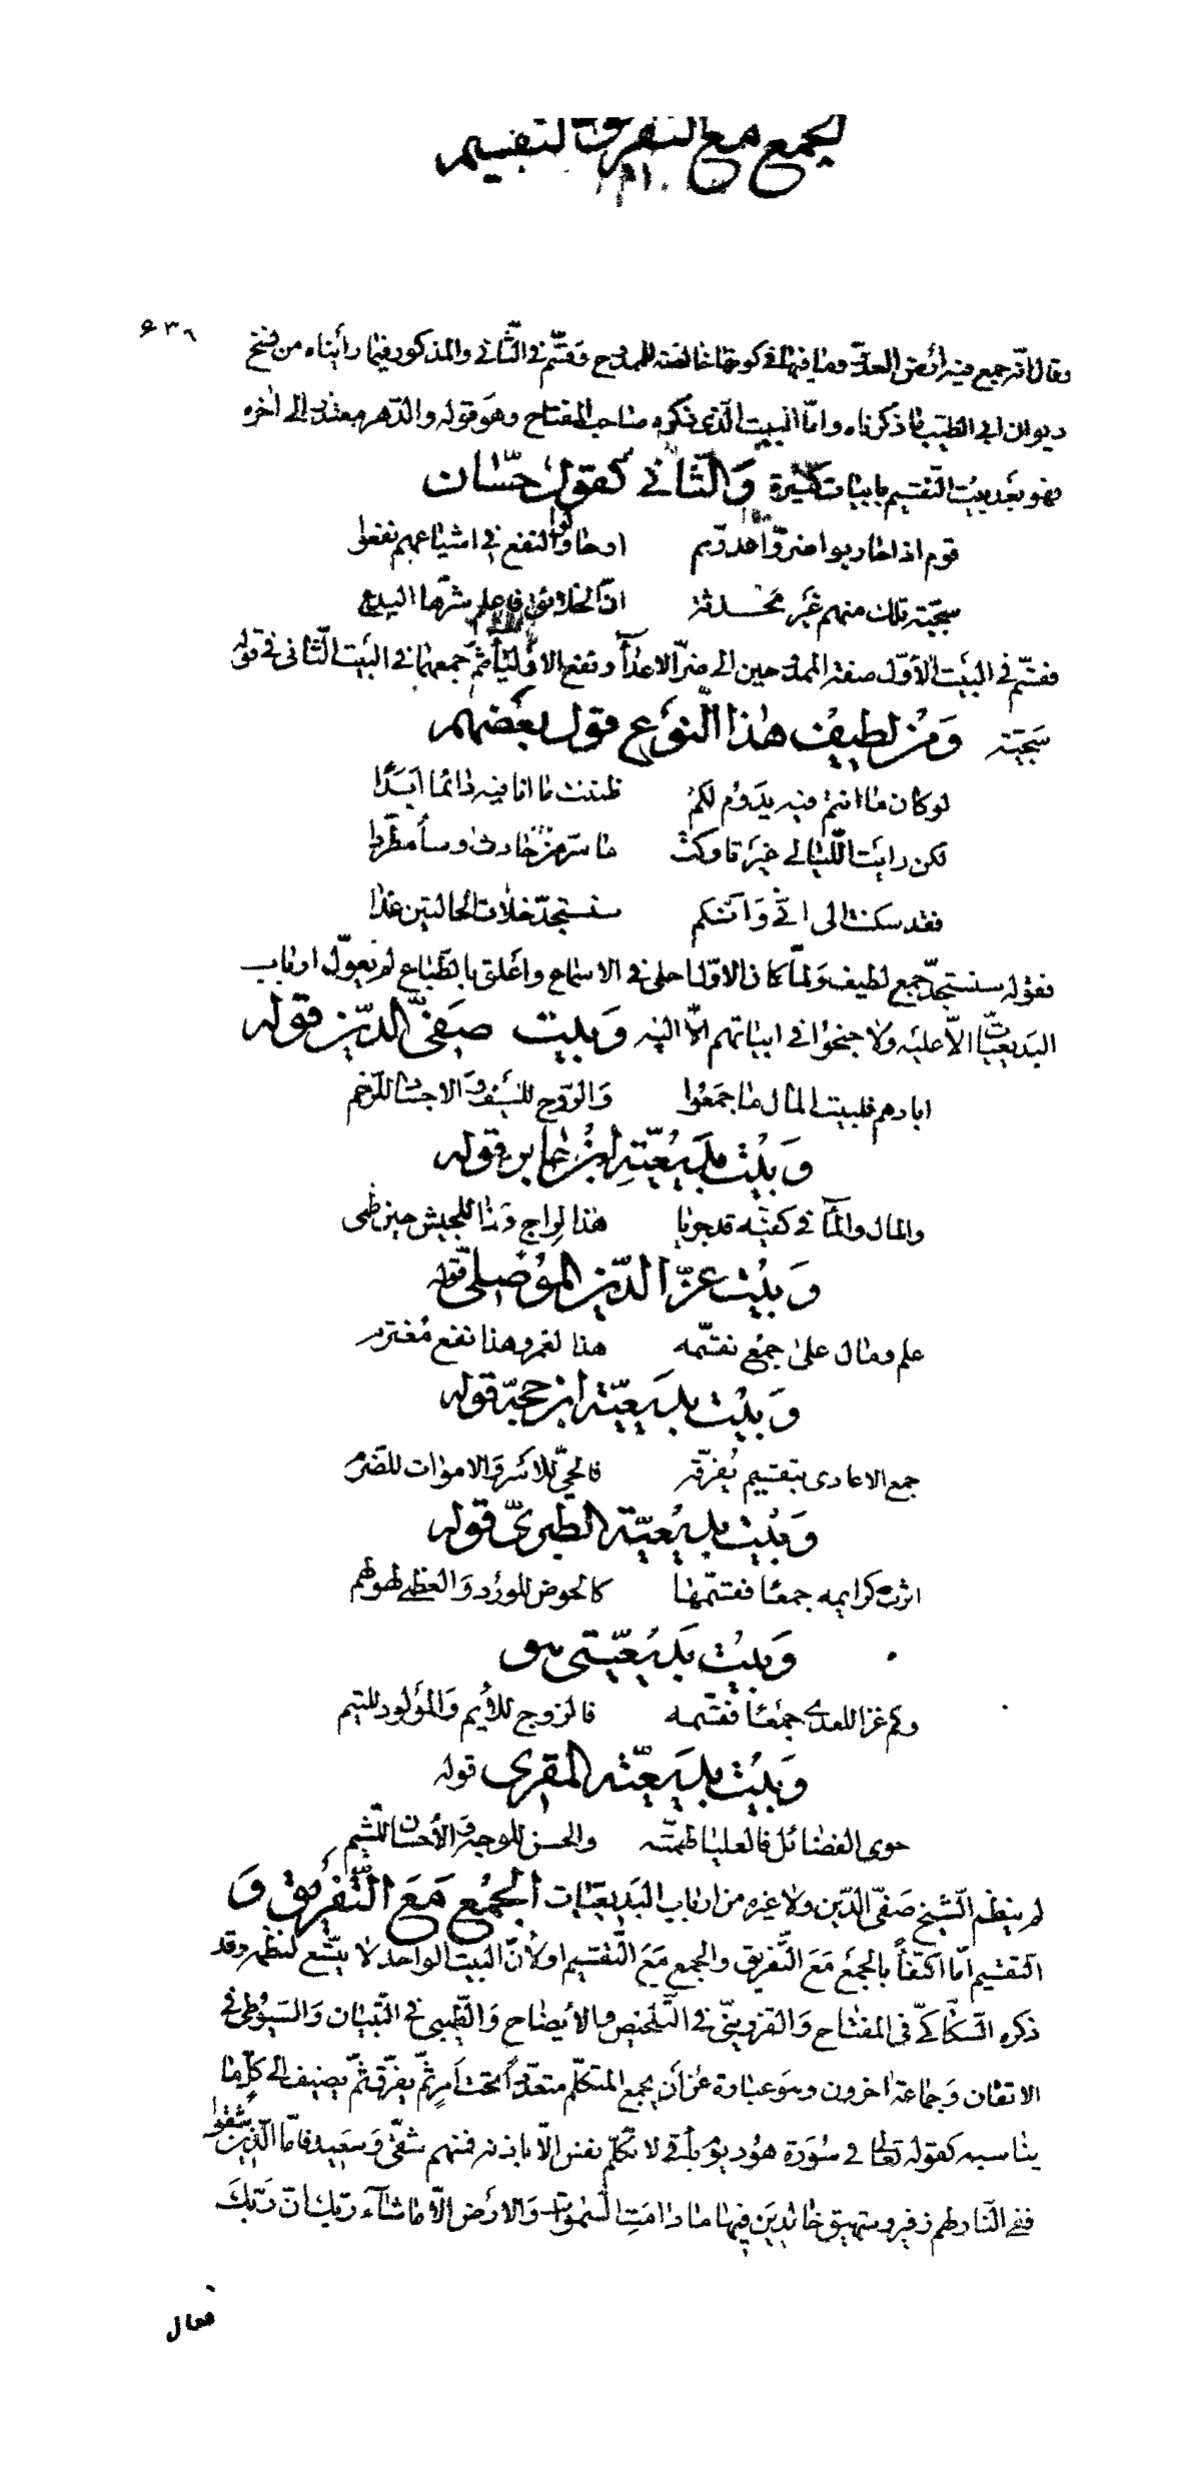 الجمع مع التفريق والتقسيم
٦٣٦
وقال انّه جمع فيه ارض العدوّ وما فيها في كونها خالصة للممدوح وقسّم في الثّاني والمذكور فيما رأيناه من نسخ
ديوان ابي الطيّب ما ذكرناه وامّا البيت الّذي ذكره صاحب المفتاح وهو قوله والدّهر معتذر الى اخره
فهو بعد بيت التّقسيم بابيات كثيرة وَالثّاني كقول حسّان
قوم اذا حاربوا ضرّوا عدوّهم اوحاولوا النفع في اشياعهم نفعوا
سجيّة تلك منهم غير محدثة انّ الخلائق فاعلم شرّها البدع
فقسّم في البيت الاوّل صفة الممدوحين الى ضرّ الاعدآء ونفع الاوليآء ثمّ جمعهما في البيت الثّاني في قوله
سجيّة وَمن لطيف هذا النّوع قول بعضهم
لو كان ما انتم فيه يدوم لكم ظننت ما انا فيه دائما ابدًا
لكن رايت اللّيالي غير تاركة ما سرّ من حادث وساء مطّردا
فقد سكنت الى انّي وانّكم سنستجدّ خلاف الحالتين غدا
فقوله سنستجدّ جمع لطيف ولمّا كان الاوّل احلى في الاسماع واعلق بالطّباع لم يعوّل ارباب
البديعيّات الّا عليه ولا جنحوا في ابياتهم الّا اليه وَبيت صفيّ الدّين قوله
ابادهم فلبيت المال ما جمعوا وَالرّوح للسّيف والاجساد للرّخم
وَبيت بديعيّة ابن جابر قوله
والمال والمآء في كفّيه قد جريا هذا لراج وذا للجيش حين ظمي
وَبيت عزّ الدّين الموصليّ قوله
علم ومال على جمع نقسّمه هذا لغمر وهذا نفع مغترم
وَبيت بديعيّة ابن حجّة قوله
جمع الاعادى بتقسيم يفرّقه فالحيّ للاسر والاموات للضّرم
وَبيت بديعيّة الطبريّ قوله
كرايمه جمعا فقسّمها كالحوض للورد والعظمى لهولهم
وَبيت بديعيّتي هو
وكم غزا للعدى جمعا فقسّمه فالزوج للأيم والمولود لليتم
وَبيت بديعيّة المقرى قوله
حوى الفضائل فالعليا لهمّته والحسن للوجه والأحسان للشّيم
لم ينظم الشّيخ صفيّ الدّين ولا غيره من ارباب البديعيّات الجمع مَعَ التّفريق وَ
التقسيم امّا اكتفاءً بالجمع مَعَ التّفريق والجمع مَعَ التّقسيم او لأنّ البيت الواحد لا يتّسع لنظمه وقد
ذكره السّكّاكيّ في المفتاح وَالقزوينيّ في التّلخيص والأيضاح وَالطّيبي في التّبيان وَالسّيوطي في
الاتقان وَجماعة اخرون وهو عبارة عن أن يجمع المتكلّم متعدّدًا تحت أمرٍ ثمّ يفرّق ثمّ يضيف الى كلّ ما
يناسبه كقوله تعالى في سورة هود يوم يأتي لا تكلّم نفس الّا باذنه فمنهم شقيّ وَسعيد فامّا الّذين شقوا
ففي النّار لهم زفير وشهيق خالدين فيها ما دامَتِ السّموات وَالارض الّا ما شآءَ ربّك انّ رَبّكَ
فعال